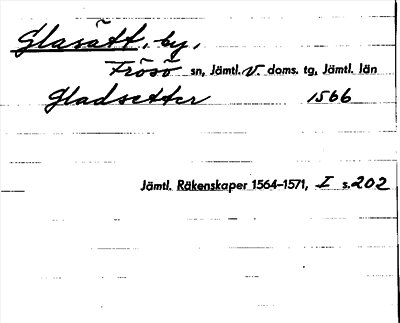 Glasätt, by,
Frösö sn, Jämtl. V. doms. tg, Jämtl. län
Gladsetter 1566
Jämtl. Räkenskaper 1564–1571, I s. 202